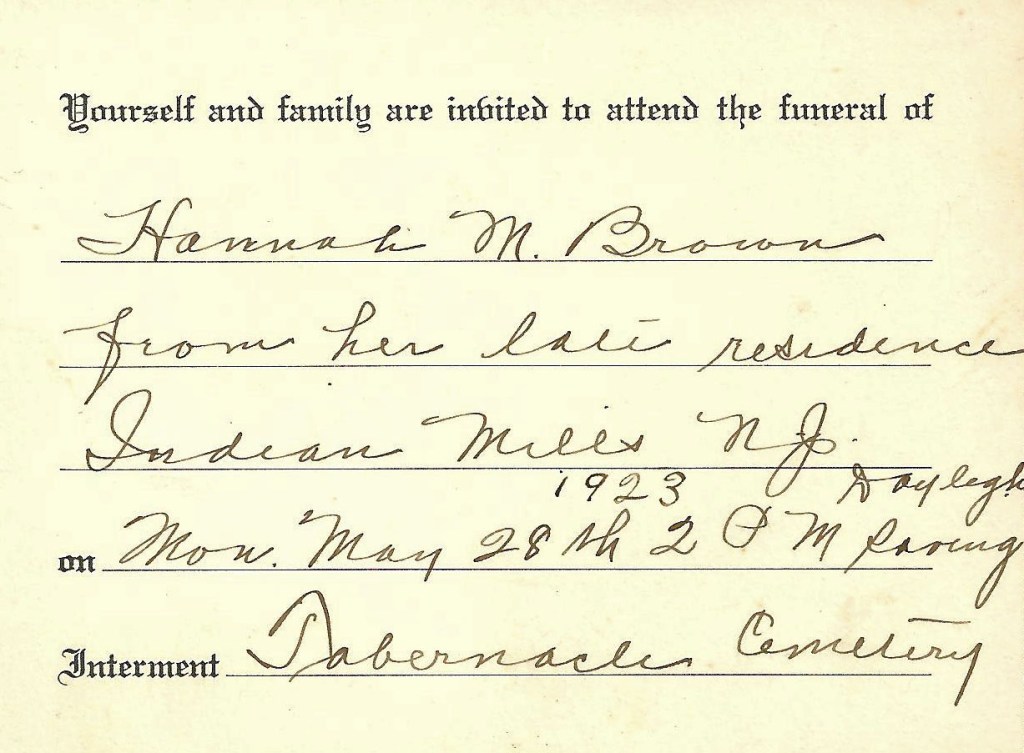 Yourself and family are invited to attend the funeral of
Hannah M. Brown
from her late residence
Indian Mills NJ.
1923 Daylegh
on Mon. May 28th 2 PM Saving
Interment Tabernacle Cemetery